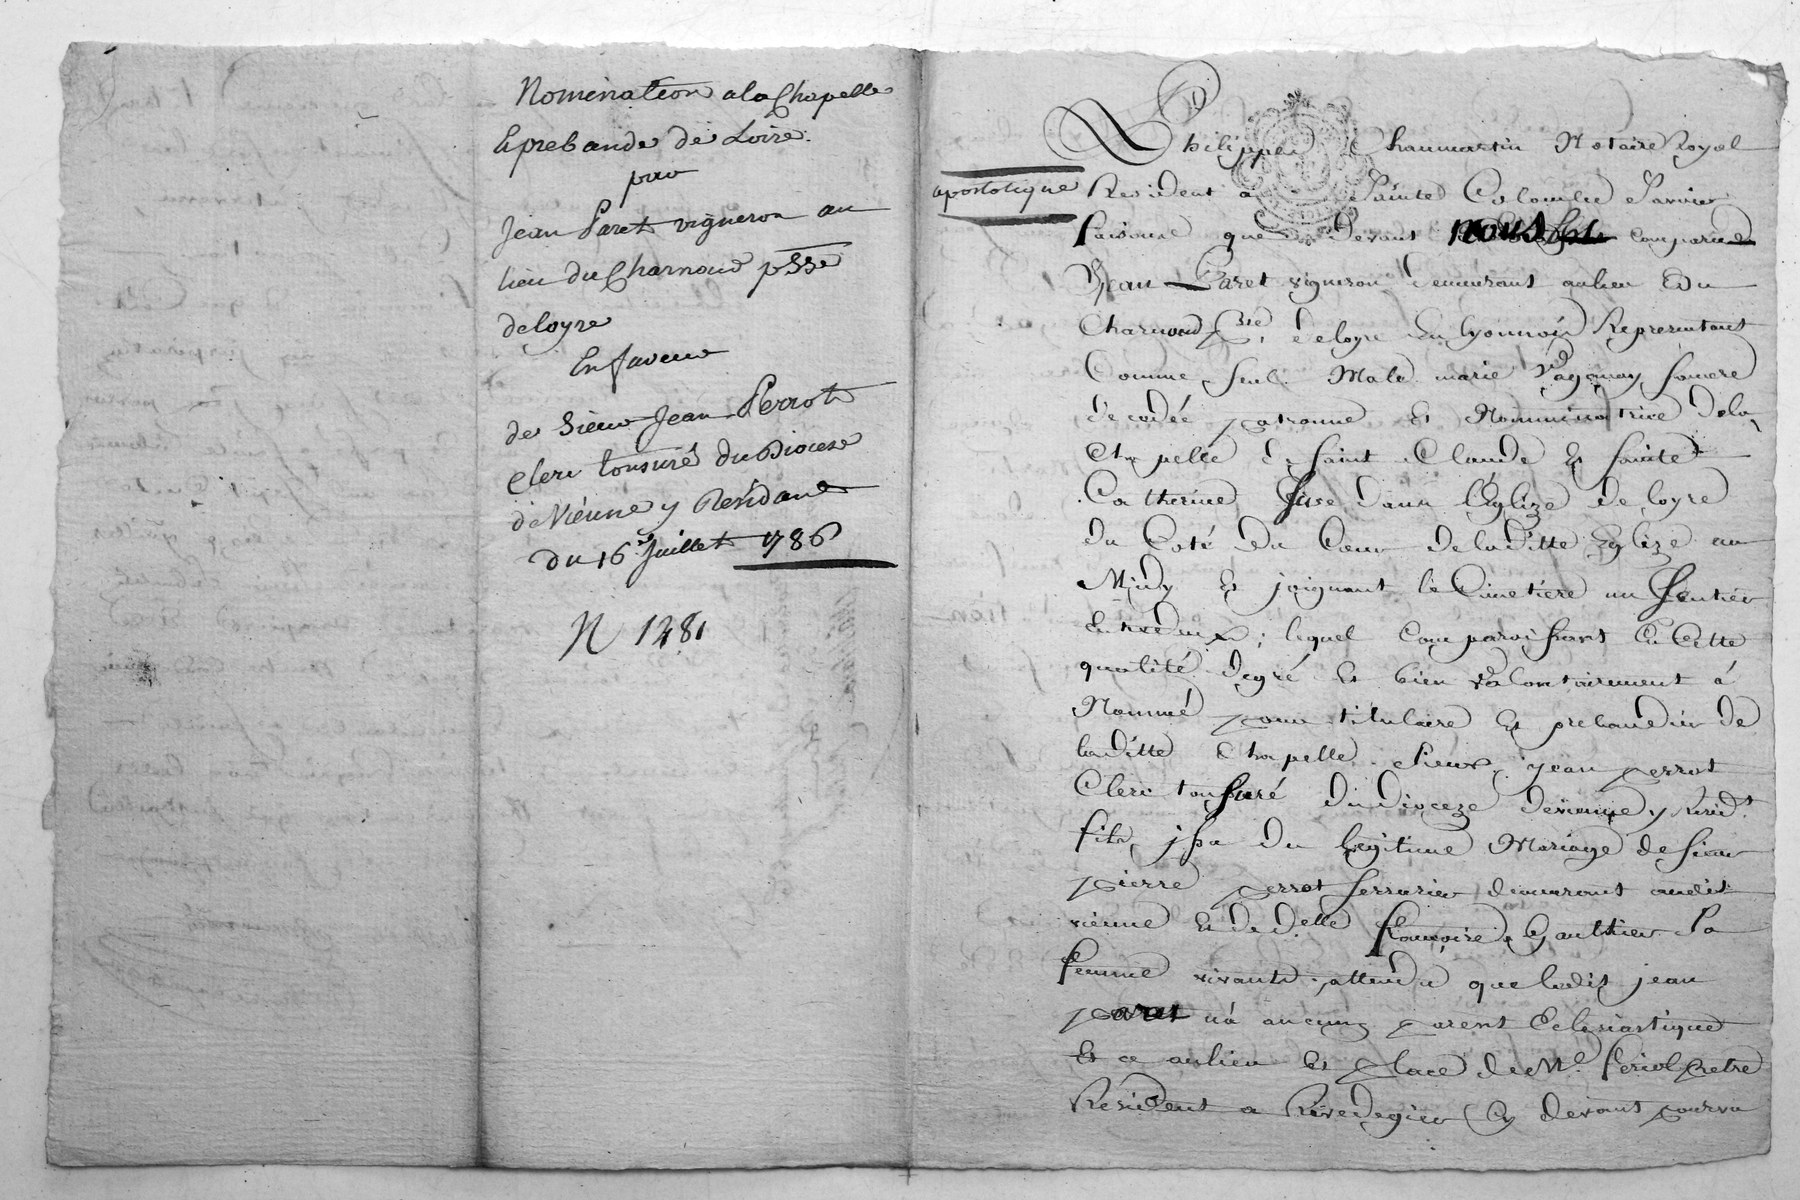 Nomination a la Chapelle
& prebande de Loire.
par
Jean Paret vigneron au
lieu du Charnoud psse
de loyre
En faveur
de Sieur Jean Perrot
Clerc tonsuré du Dioceze
de Vienne y Residant
du 16e Juillet 1786
N 1281
Philippe Chaumartin Notaire Royal
apostolique
Resident a Sainte Colombe
faisons que devant nous comparu
Jean Paret vigneron demeurant au lieu du
Charnoud psse de loyre en lyonnois Representant
Comme seul Male marie Pagonay sa mere
decedée patronne et Nomminatrice de la
Chapelle de Saint Claude et Sainte
Catherine sise dans l'Eglize de loyre
du Coté du Cœur de laditte Eglize au
Midy et joignant le Cimetiere un Sentier
entredeux, lequel Comparoissant en Cette
qualité de gré et bien volontairement á
Nommé pour titulaire et prebandier de
laditte Chapelle Sieur jean perrot
Clerc tonsuré du dioceze de vienne y resid.t
fils issu du legitime Mariage de sieur
pierre perrot serrurier demeurant audit
vienne et de Delle Françoise Gauthier sa
femme vivants, attendu que ledit jean
paret n'á aucung parent Eclesiastique
Et ce au lieu et place de Mre feriol pretre
Resident a Rivedegier Cy devant pourvu